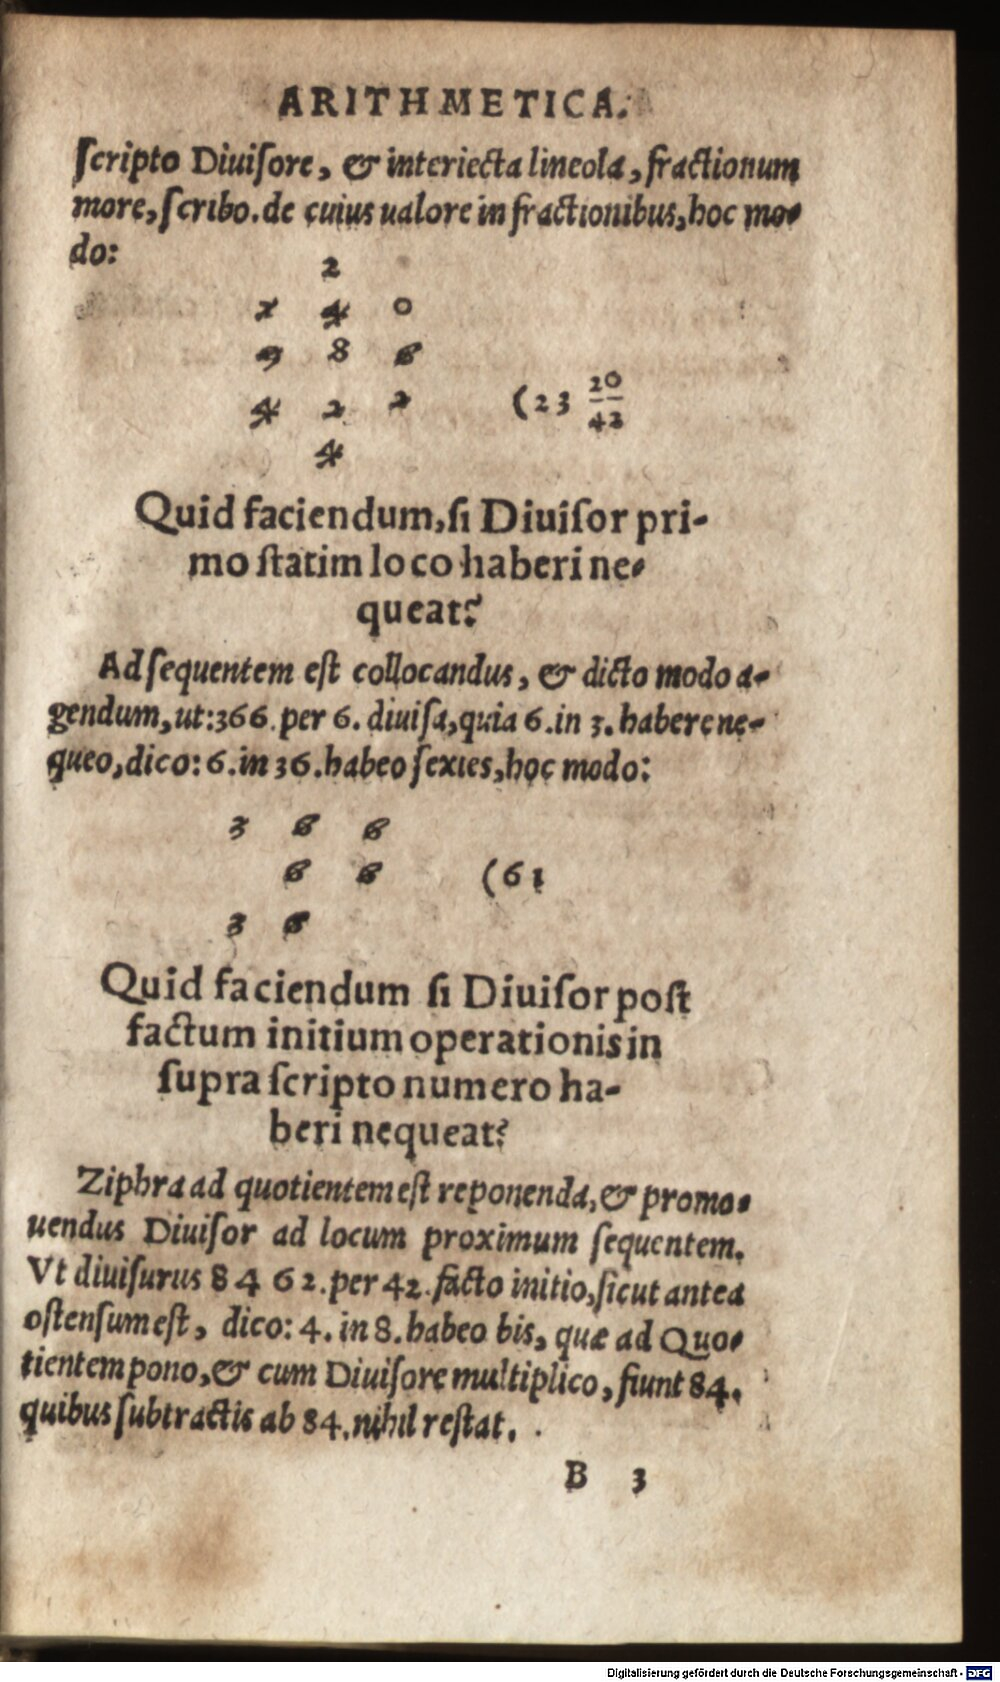 ARITHMETICA.
ſcripto Diuiſore, & interiecta lineola, fractionum
more, ſcribo. de cuius ualore in fractionibus, hoc mo-
do:
2
1 4 0
9 8 6
4 2 2 (23 20/42
4
Quid faciendum, ſi Diuiſor pri-
mo ſtatim loco haberi ne-
queat?
Ad ſequentem eſt collocandus, & dicto modo a-
gendum, ut: 366. per 6. diuiſa, quia 6. in 3. habere ne-
queo, dico: 6. in 36. habeo ſexies, hoc modo:
3 6 6
6 6 (61
3 6
Quid faciendum ſi Diuiſor poſt
factum initium operationis in
ſupra ſcripto numero ha-
beri nequeat?
Ziphra ad quotientem eſt reponenda, & promo-
uendus Diuiſor ad locum proximum ſequentem.
Vt diuiſurus 8 4 6 2. per 42. facto initio, ſicut antea
oſtenſum eſt, dico: 4. in 8. habeo bis, quæ ad Quo-
tientem pono, & cum Diuiſore multiplico, fiunt 84.
quibus ſubtractis ab 84. nihil reſtat.
B 3
Digitalisierung gefördert durch die Deutsche Forschungsgemeinschaft - DFG